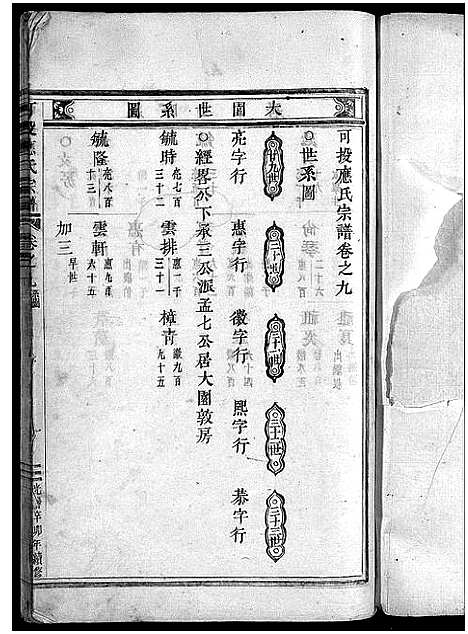 大園世系圖
可投應氏宗譜卷之九
○世系圖
廿九世 三十世 三十一世 三十二世 三十三世
亮字行 惠字行 徽字行 熙字行 恭字行
○經畧公下承三公派孟七公居大園敦房
毓時 亮七百三十二 雲排 惠一千三十一 樟青 徽九百九十五
毓隆 亮八百十三 雲軒 惠九百六十五
加三 早世
可投應氏宗譜 卷之九
光緒辛卯年續修